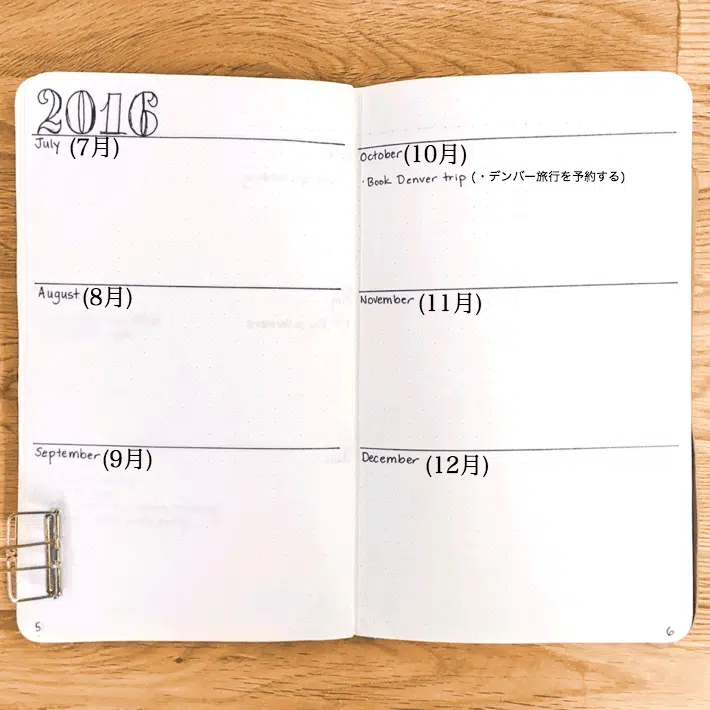 2016
July (7月)
August (8月)
September (9月)
5
October (10月)
· Book Denver trip (・デンバー旅行を予約する)
November (11月)
December (12月)
6